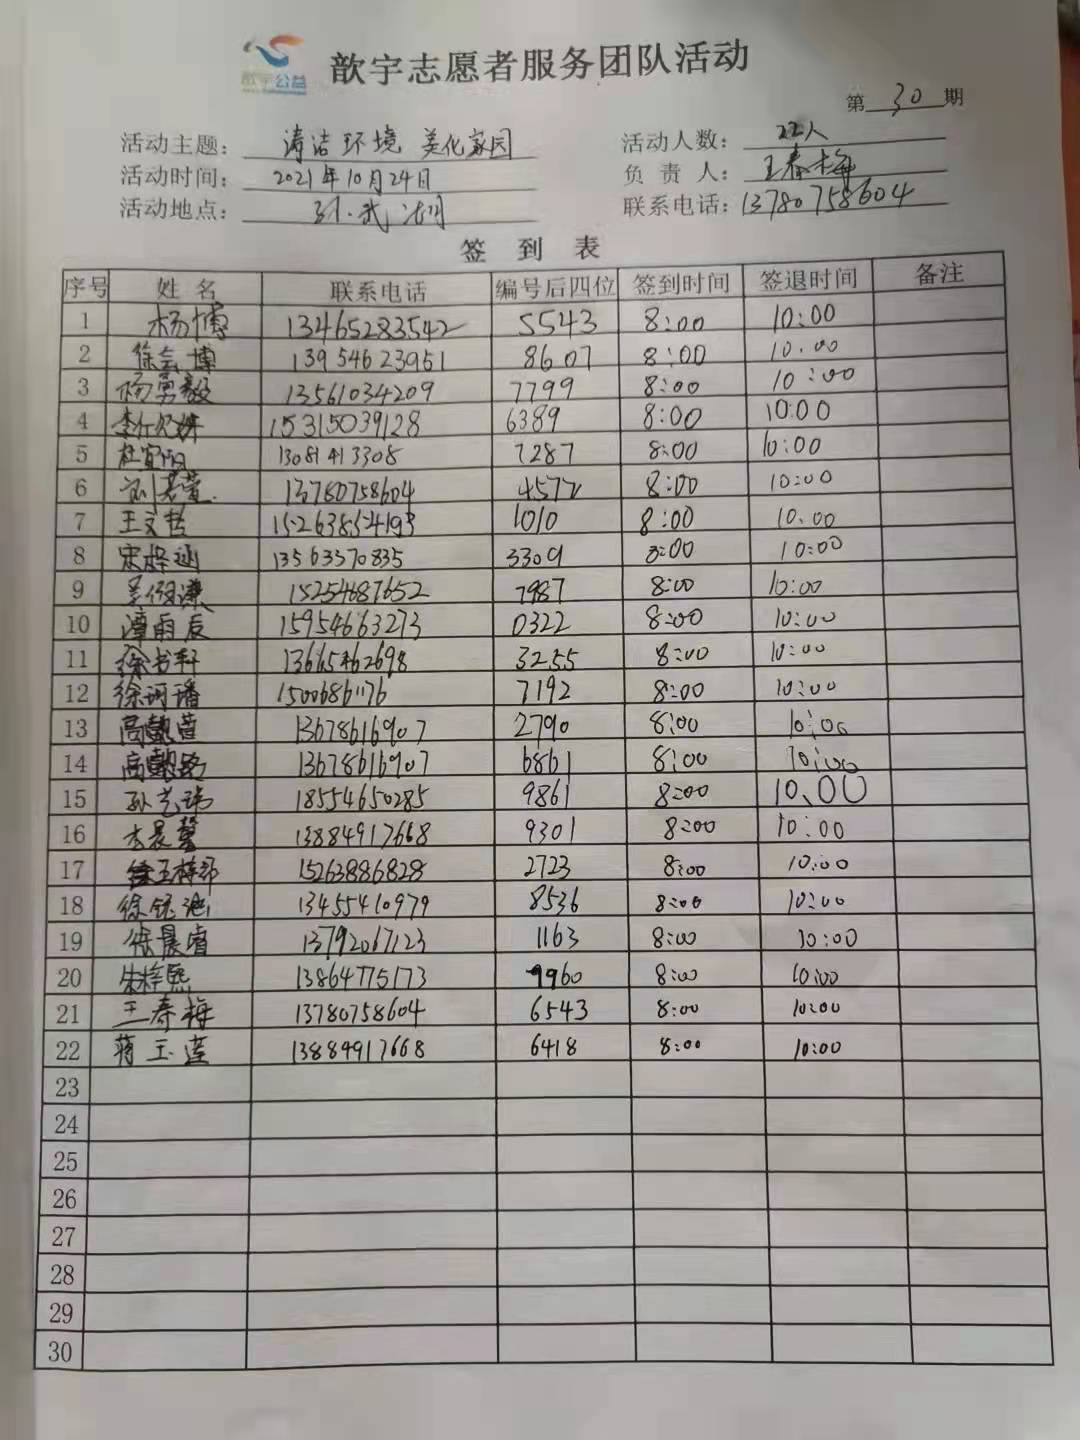 歆宇公益
歆宇志愿者服务团队活动
第 30 期
活动主题: 清洁环境 美化家园 活动人数: 22人
活动时间: 2021年10月24日 负责人: 王春梅
活动地点: 孙武湖 联系电话: 13780758604
签到表
序号 姓名 联系电话 编号后四位 签到时间 签退时间 备注
1 杨博 13465283542 5543 8:00 10:00
2 徐会博 13954623951 8607 8:00 10:00
3 杨勇毅 13561034209 7799 8:00 10:00
4 李 15315039128 6389 8:00 10:00
5 杜宜 13081413308 7287 8:00 10:00
6 刘若萱 13780758604 4572 8:00 10:00
7 王文哲 15263854193 1010 8:00 10.00
8 宋梓涵 13563370835 3309 8:00 10:00
9 15254687652 7987 8:00 10:00
10 潭雨辰 15954663273 0322 8:00 10:00
11 徐书轩 13665462698 3255 8:00 10:00
12 徐珂璠 15006861176 7192 8:00 10:00
13 高懿萱 13678616907 2790 8:00 10:00
14 高懿路 13678616907 6861 8:00 10:00
15 孙艺玮 18554650285 9861 8:00 10.00
16 李晨馨 13884917668 9301 8:00 10:00
17 徐玉梓 15263886828 2723 8:00 10:00
18 徐 13455410979 8536 8:00 10:00
19 徐晨睿 13792067123 1163 8:00 10:00
20 朱梓熙 13864775173 9960 8:00 10:00
21 王春梅 13780758604 6543 8:00 10:00
22 蒋玉莲 13884917668 6418 8:00 10:00
23
24
25
26
27
28
29
30